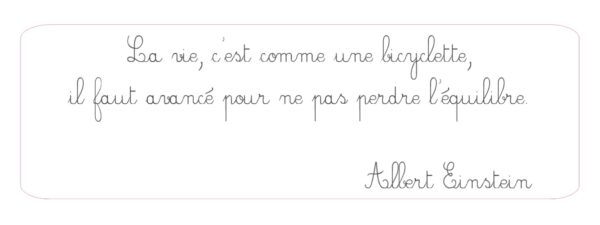 La vie, c'est comme une bicyclette,
il faut avancé pour ne pas perdre l'équilibre.
Albert Einstein